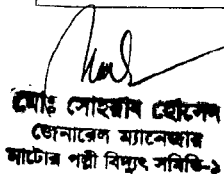 মোঃ সোহরাব হোসেন
জেনারেল ম্যানেজার
নাটোর পল্লী বিদ্যুৎ সমিতি-১